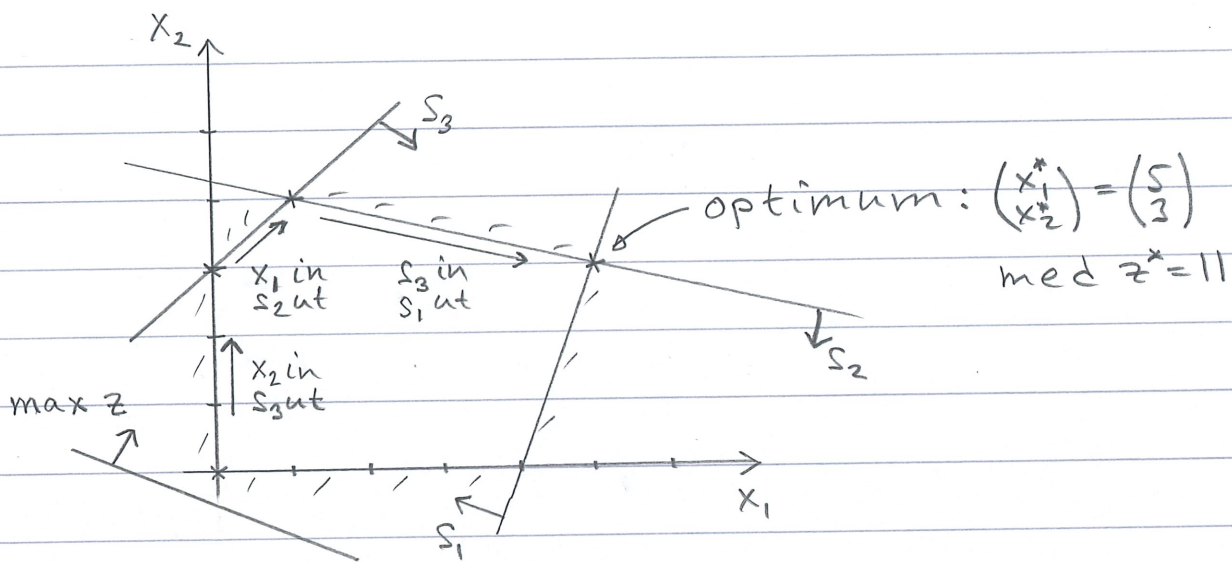 X₂
S₃
optimum: (x₁* x₂*) = (5 3)
med z* = 11
x₁ in
s₂ ut
S₃ in
S₁ ut
S₂
x₂ in
S₃ ut
max z
X₁
S₁